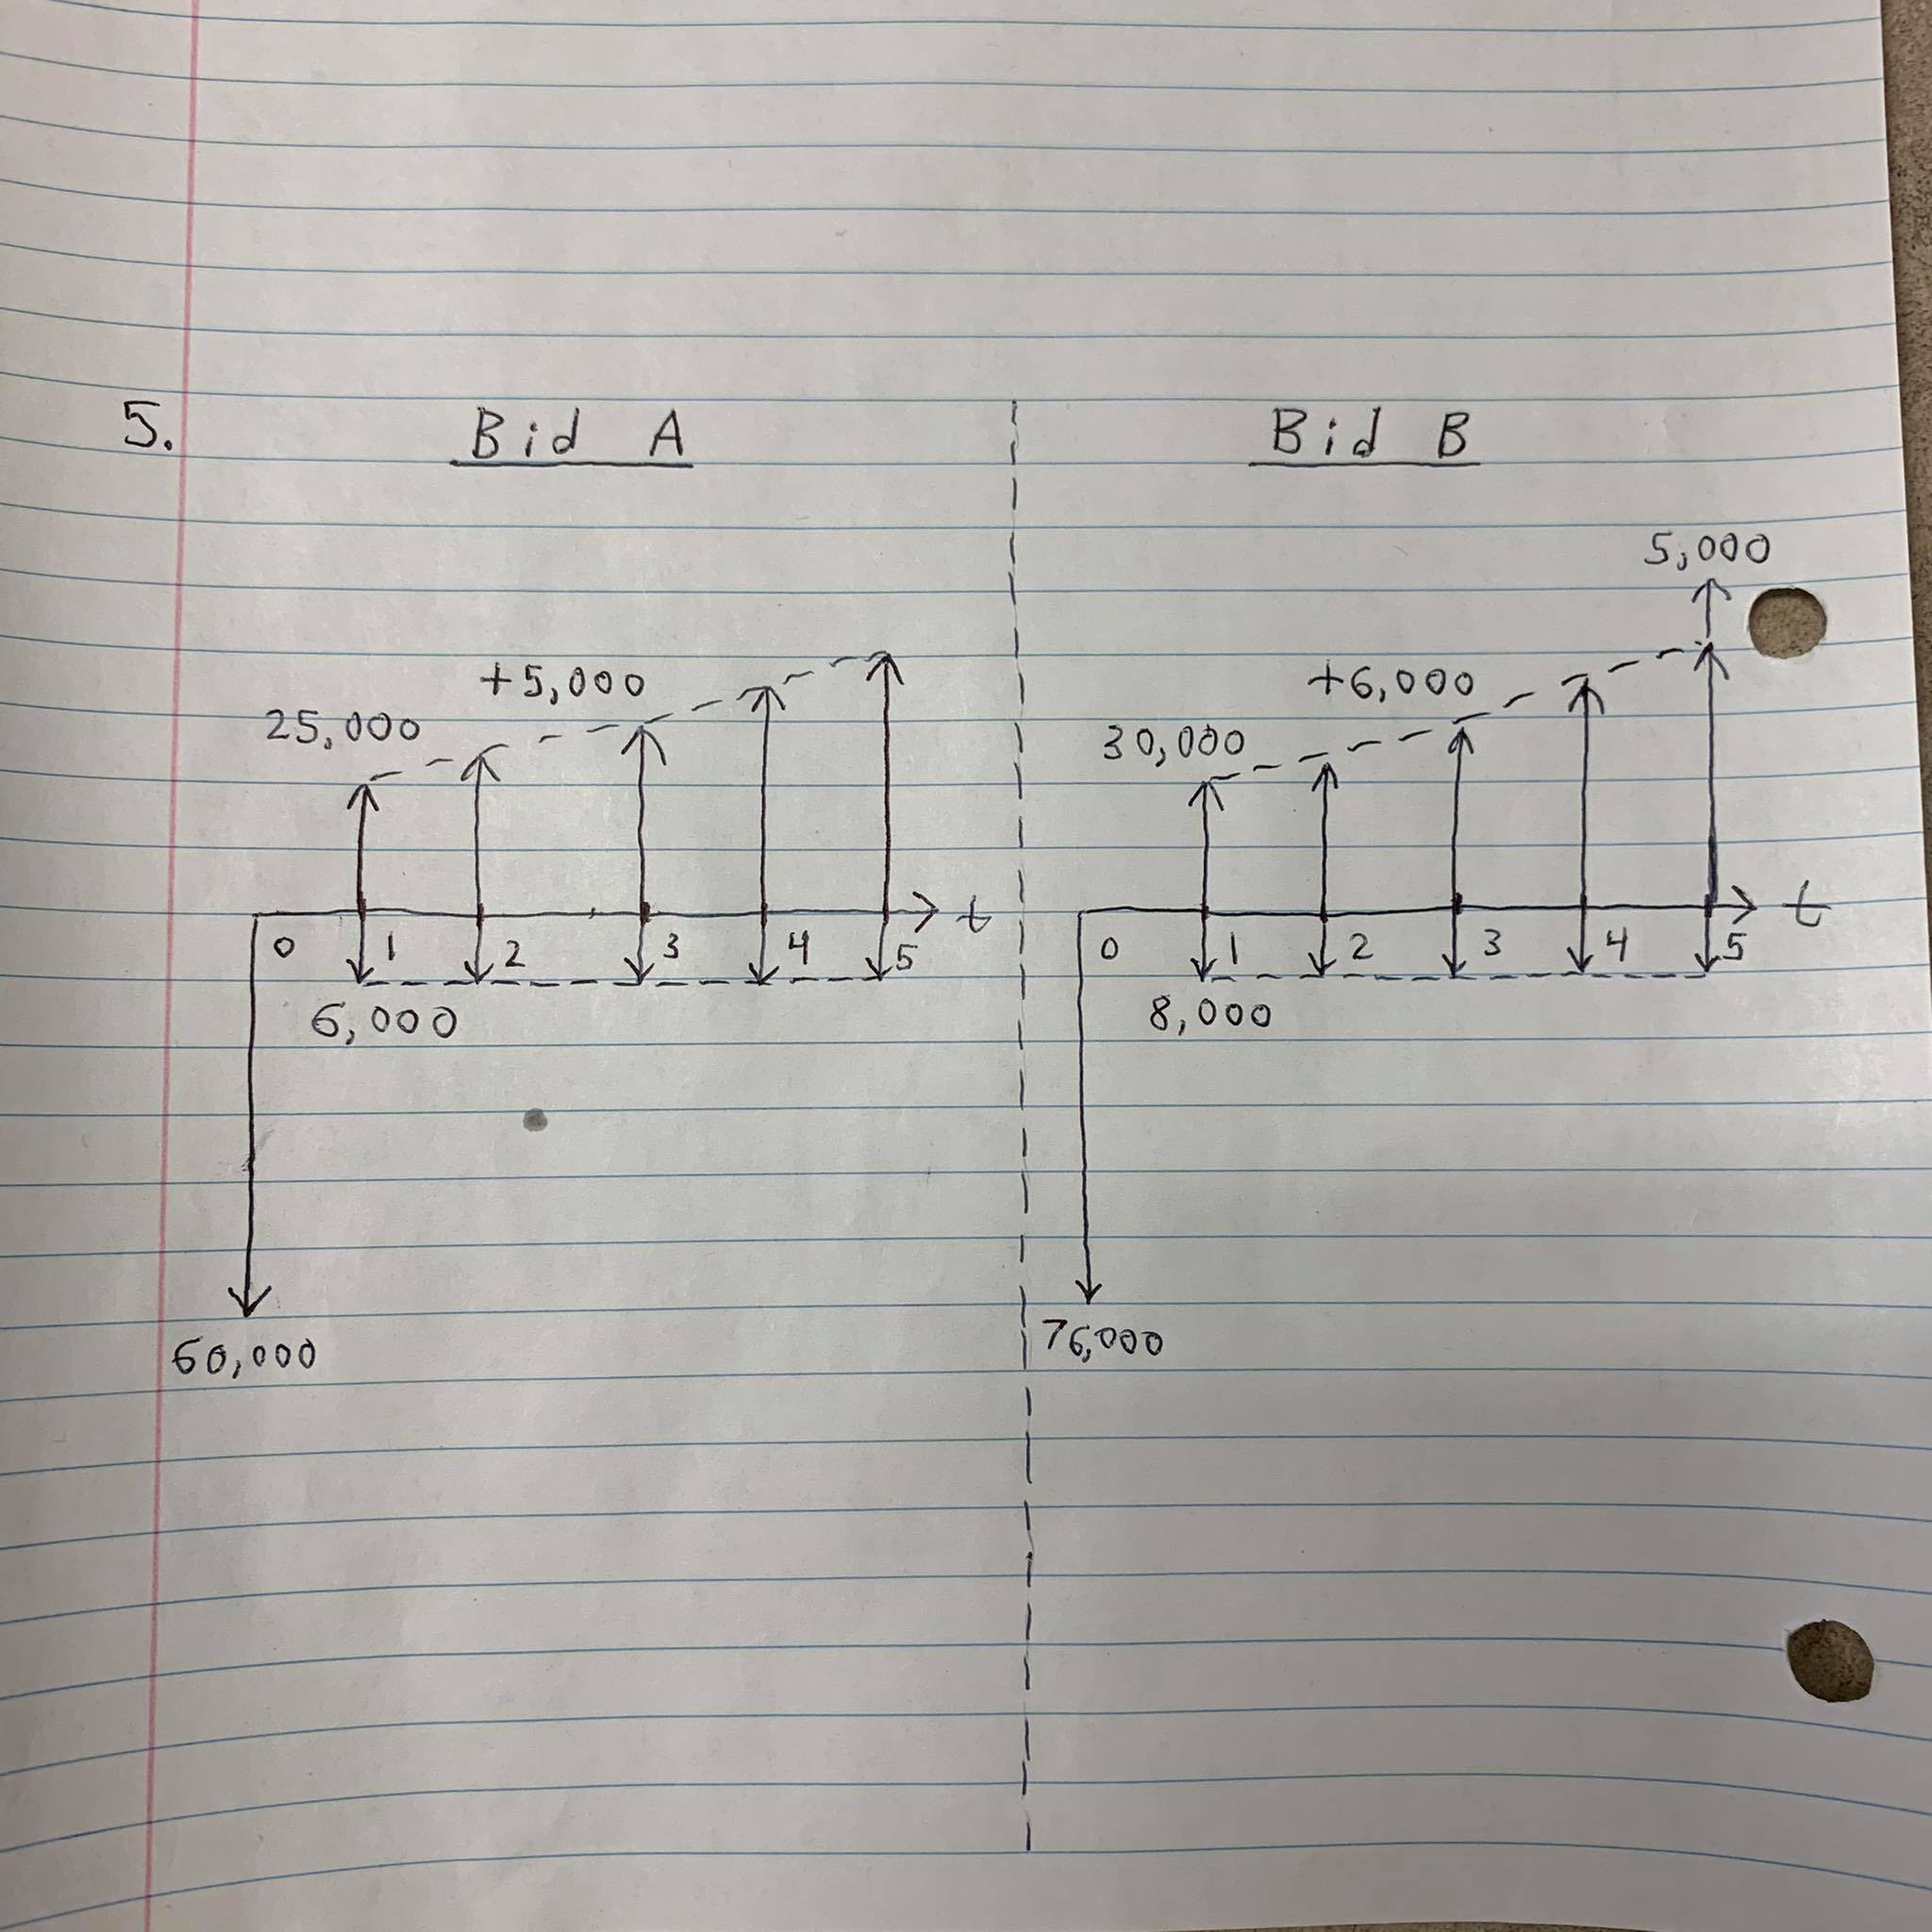 5.
Bid A
+5,000
25,000
0 1 2 3 4 5 t
6,000
60,000
Bid B
5,000
+6,000
30,000
0 1 2 3 4 5 t
8,000
76,000